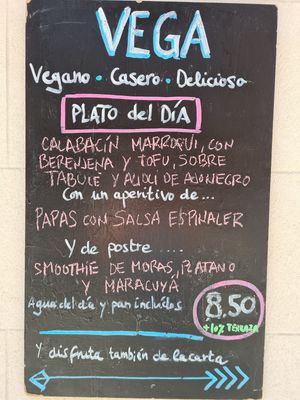 VEGA
Vegano • Casero • Delicioso
PLATO del DÍA
CALABACÍN MARROQUI, CON
BERENJENA Y TOFU, SOBRE
TABULÉ Y ALIOLI DE AJO NEGRO
Con un aperitivo de...
PAPAS CON SALSA ESPINALER
Y de postre ....
SMOOTHIE DE MORAS, PLATANO
Y MARACUYÁ
Agua del día y pan incluidos
8,50
+10% TERRAZA
Y disfruta también de la carta